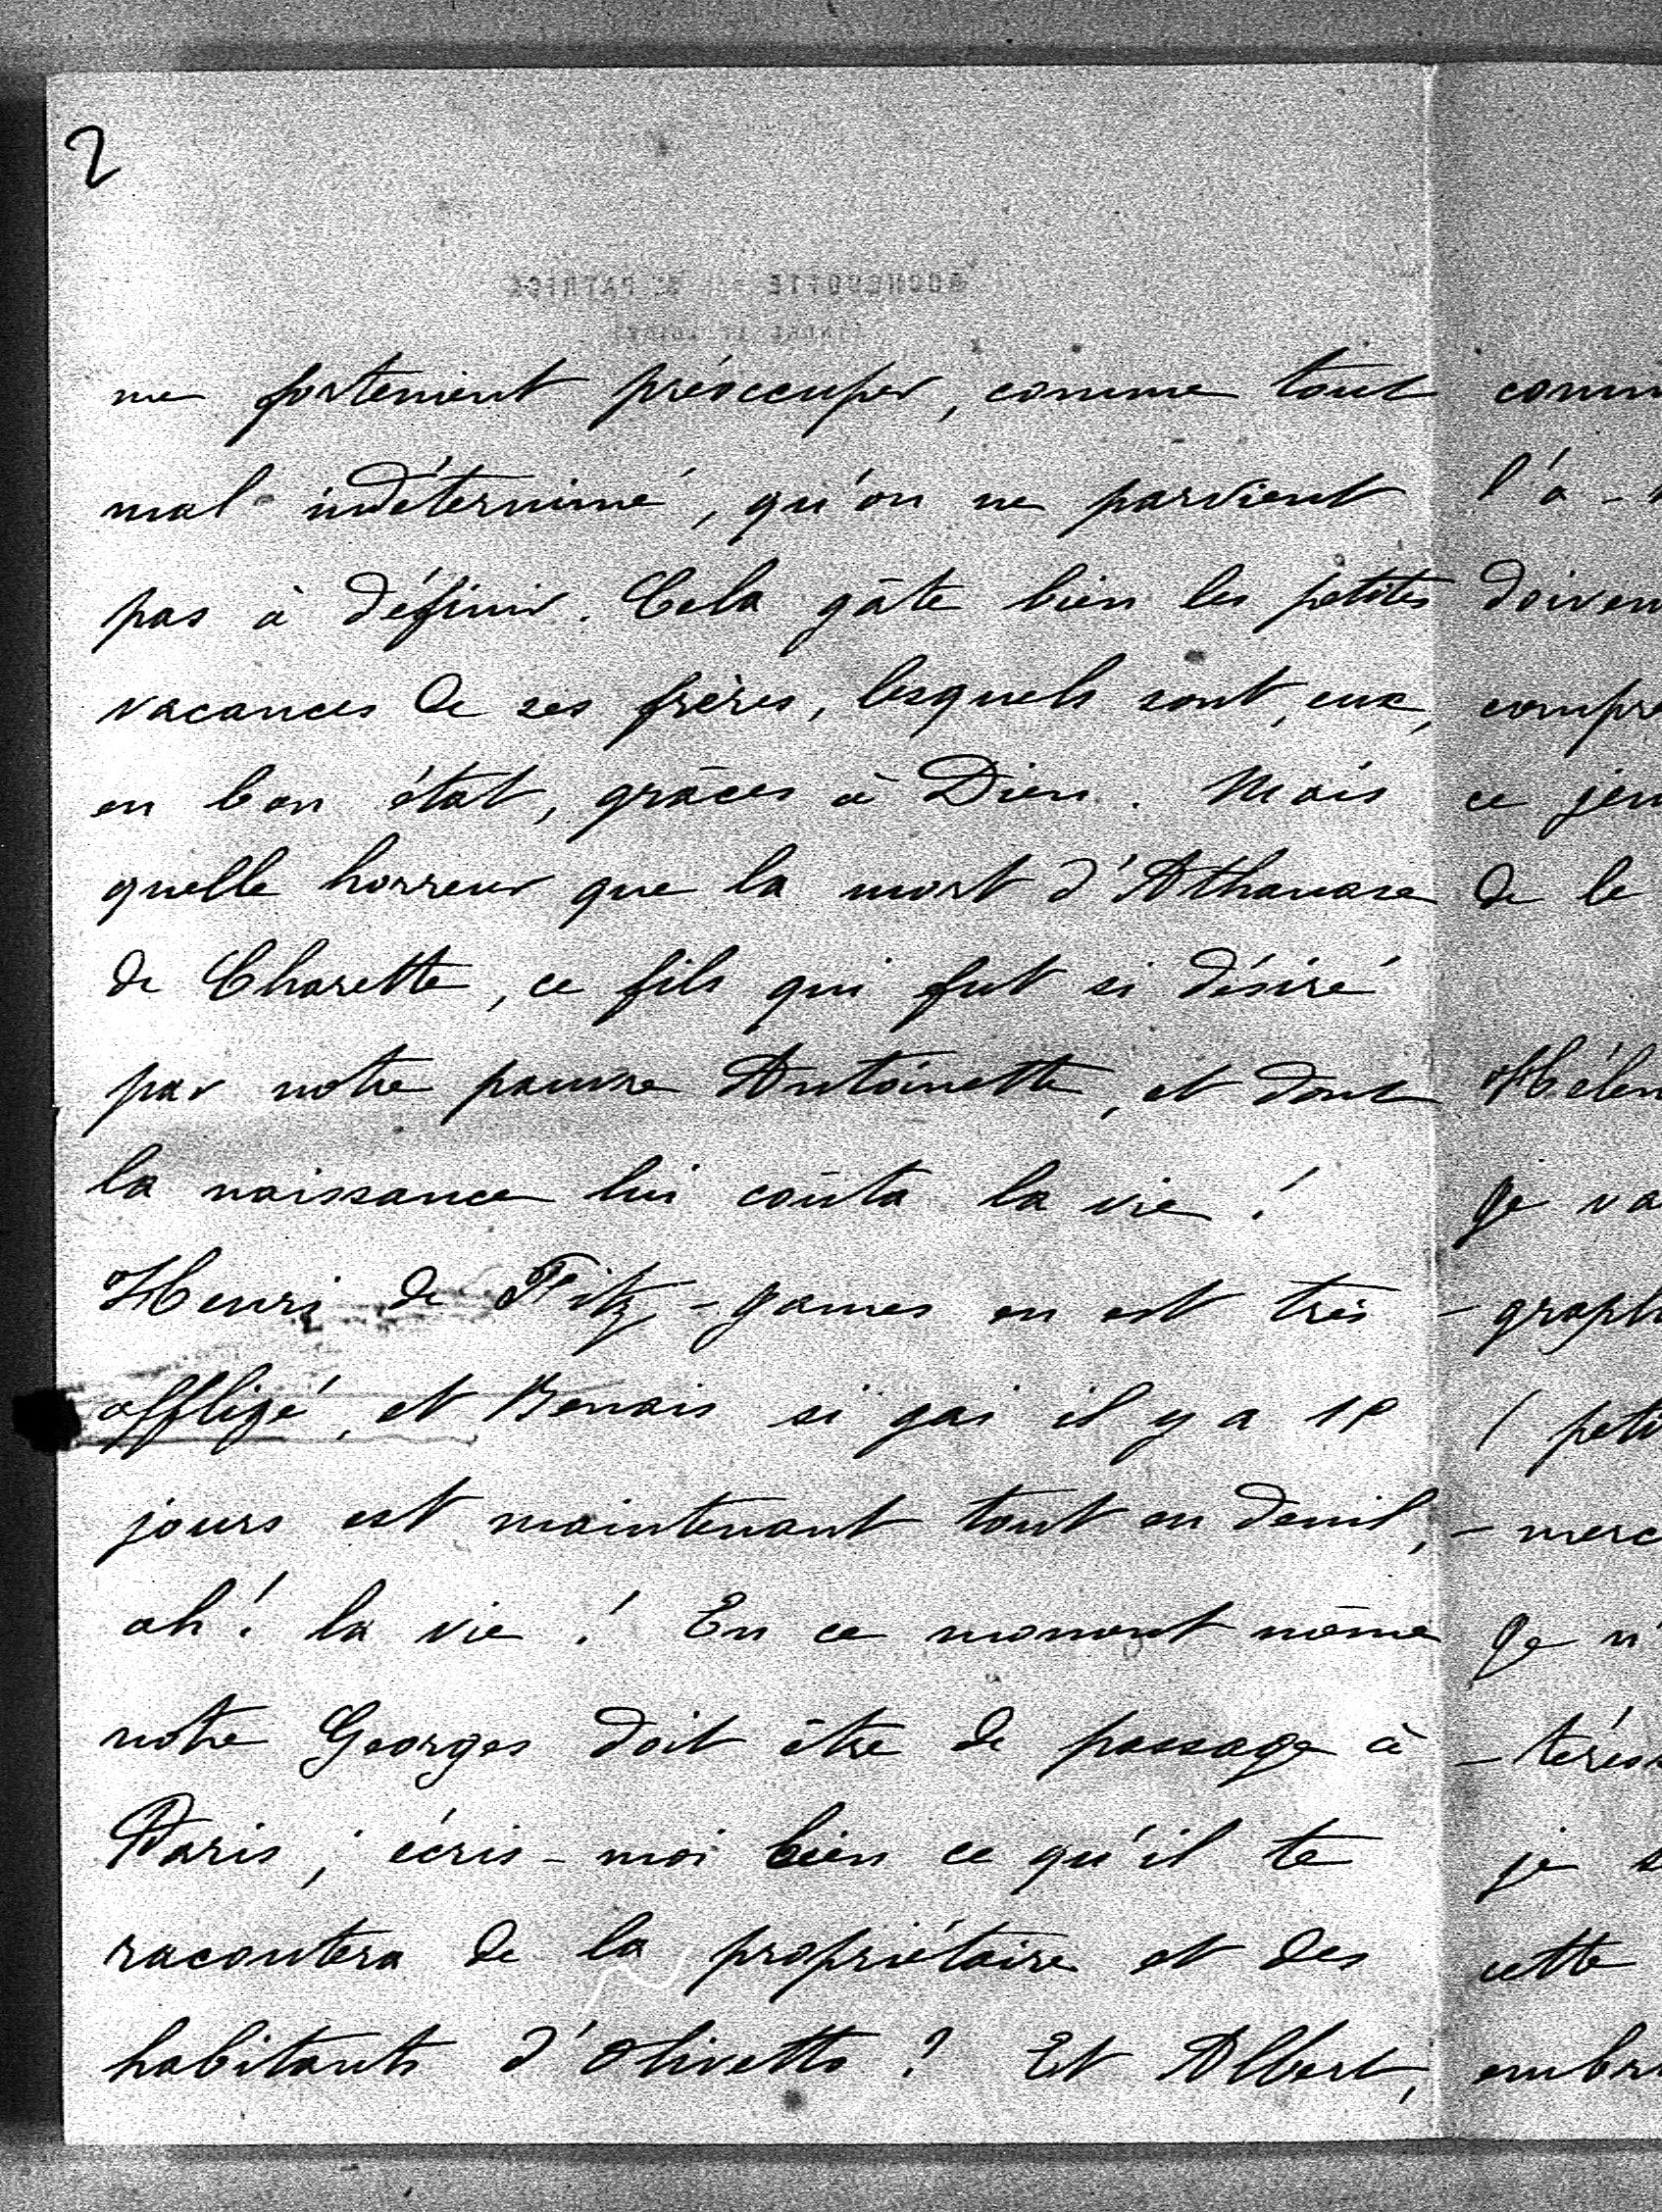 2
me fortement préoccuper, comme tout
mal indéterminé, qu'on ne parvient
pas à définir. Cela gâte bien les petites
vacances de ses frères, lesquels sont, eux,
en bon état, grâces à Dieu. Mais
quelle horreur que la mort d'Athanase
de Charette, ce fils qui fut si désiré
par notre pauvre Antoinette, et dont
la naissance lui coûta la vie !
Henri de Fitz-James en est très
affligé, et Benais si gai il y a 10
jours est maintenant tout en deuil,
ah ! la vie ! En ce moment même
notre Georges doit être de passage à
Paris ; écris-moi bien ce qu'il te
racontera de la propriétaire et des
habitants d'Olivetto ? Et Albert,
l'a-
doiven
compre
ce jeu
de le
Hélèn
je va
- graph
( peti
- merc
Je n'
je s
cette
embra